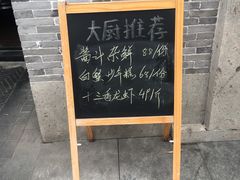 大厨推荐
酱汁杂鲜 88/份
白蟹炒年糕 68/份
十三香龙虾 49/斤